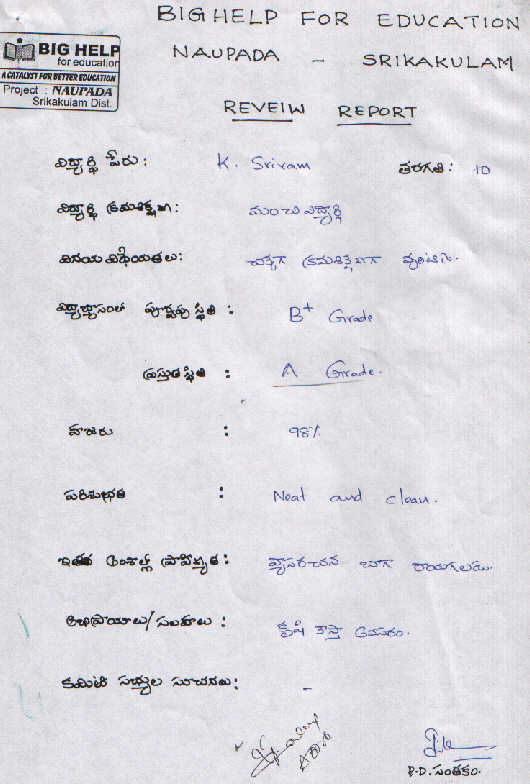 BIG HELP FOR EDUCATION
NAUPADA - SRIKAKULAM
BIG HELP
for education
A CATALYST FOR BETTER EDUCATION
Project : NAUPADA
Srikakulam Dist.
REVEIW REPORT
విద్యార్థి పేరు: K. Sriram తరగతి: 10
విద్యార్థి క్రమశిక్షణ: మంచి విద్యార్థి
వినయ విధేయతలు: చక్కగా క్రమశిక్షణగా
విద్యాభ్యాసంలో పూర్వపు స్థితి : B+ Grade
ప్రస్తుత స్థితి : A Grade.
హాజరు : 98%
పరిశుభ్రత : Neat and clean.
ఇతర అంశాల్లో ప్రావీణ్యత: వ్యాసరచన బాగా రాయగలడు.
అభిప్రాయాలు/సలహాలు : కృషి కొస్తా అవసరం.
కమిటీ సభ్యుల సూచనలు: -
P.D. సంతకం.